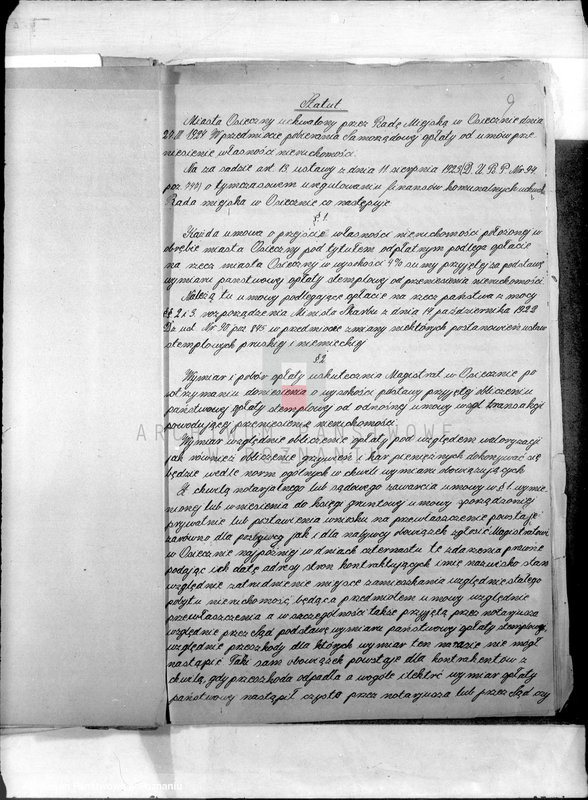 9
Statut
Miasta Osieczny uchwalony przez Radę Miejską w Osiecznie dnia
20 III 1924 W przedmiocie pobierania Samorządowej opłaty od umów prze
niesienie własności nieruchomości.
Na zasadzie art 13 ustawy z dnia 11 sierpnia 1923 (D. U. R. P. Nr 94
poz 747) o tymczasowem uregulowaniu finansów komunalnych uchwala
Rada miejska w Osiecznie co następuje
§ 1.
Każda umowa o przejście własności nieruchomości położonej w
obrębie miasta Osieczny pod tytułem odpłatnym podlega opłacie
na rzecz miasta Osieczny w wysokości 4% sumy przyjętej za podstawę
wymiaru państwowej opłaty stemplowej od przeniesienia nieruchomości.
Należą tu umowy podlegające opłacie na rzecz państwa z mocy
§§ 2 i 3. rozporządzenia Ministra Skarbu z dnia 14 października 1922
Dz. ust Nr 90 poz 845 w przedmiocie zmiany niektórych postanowień ustaw
stemplowych pruskiej i niemieckiej
§ 2
Wymiar i pobór opłaty uskutecznia Magistrat w Osiecznie po
otrzymaniu doniesienia o wysokości podstawy przyjętej obliczeniu
państwowej opłaty stemplowej od odnośnej umowy wzgl. tranzakcji
powodującej przeniesienie nieruchomości.
Wymiar względnie obliczenie opłaty pod względem waloryzacji
jak również obliczenie grzywien i kar pieniężnych dokonywać się
będzie wedle norm ogólnych w chwili wymiaru obowiązujących
Z chwilą notarjalnego lub sądowego zawarcia umowy w § 1. wymie
nionej lub wniesienia do księgi gruntowej umowy sporządzonej
prywatnie lub postawienia wniosku na przewłaszczenie powstaje
zarówno dla pozbywcy jak i dla nabywcy obowiązek zgłosić Magistratowi
w Osiecznie najpóźniej w dniach czternastu te zdarzenia prawne
podając ich datę adresy stron kontraktujących imię nazwisko stan
względnie zatrudnienie miejsce zamieszkania względnie stałego
pobytu nieruchomość będąca przedmiotem umowy względnie
przewłaszczenia a w szczególności także przyjętą przez notarjusza
względnie przez Sąd podstawę wymiaru państwowej opłaty stemplowej,
względnie przeszkody dla których wymiar ten narazie nie mógł
nastąpić Taki sam obowiązek powstaje dla kontrahentów z
chwilą, gdy przeszkoda odpadła a wogóle wymiar opłaty
państwowej nastąpił czysto przez notarjusza lub przez Sąd czy
ARCHIWUM PAŃSTWOWE
POZNANIU